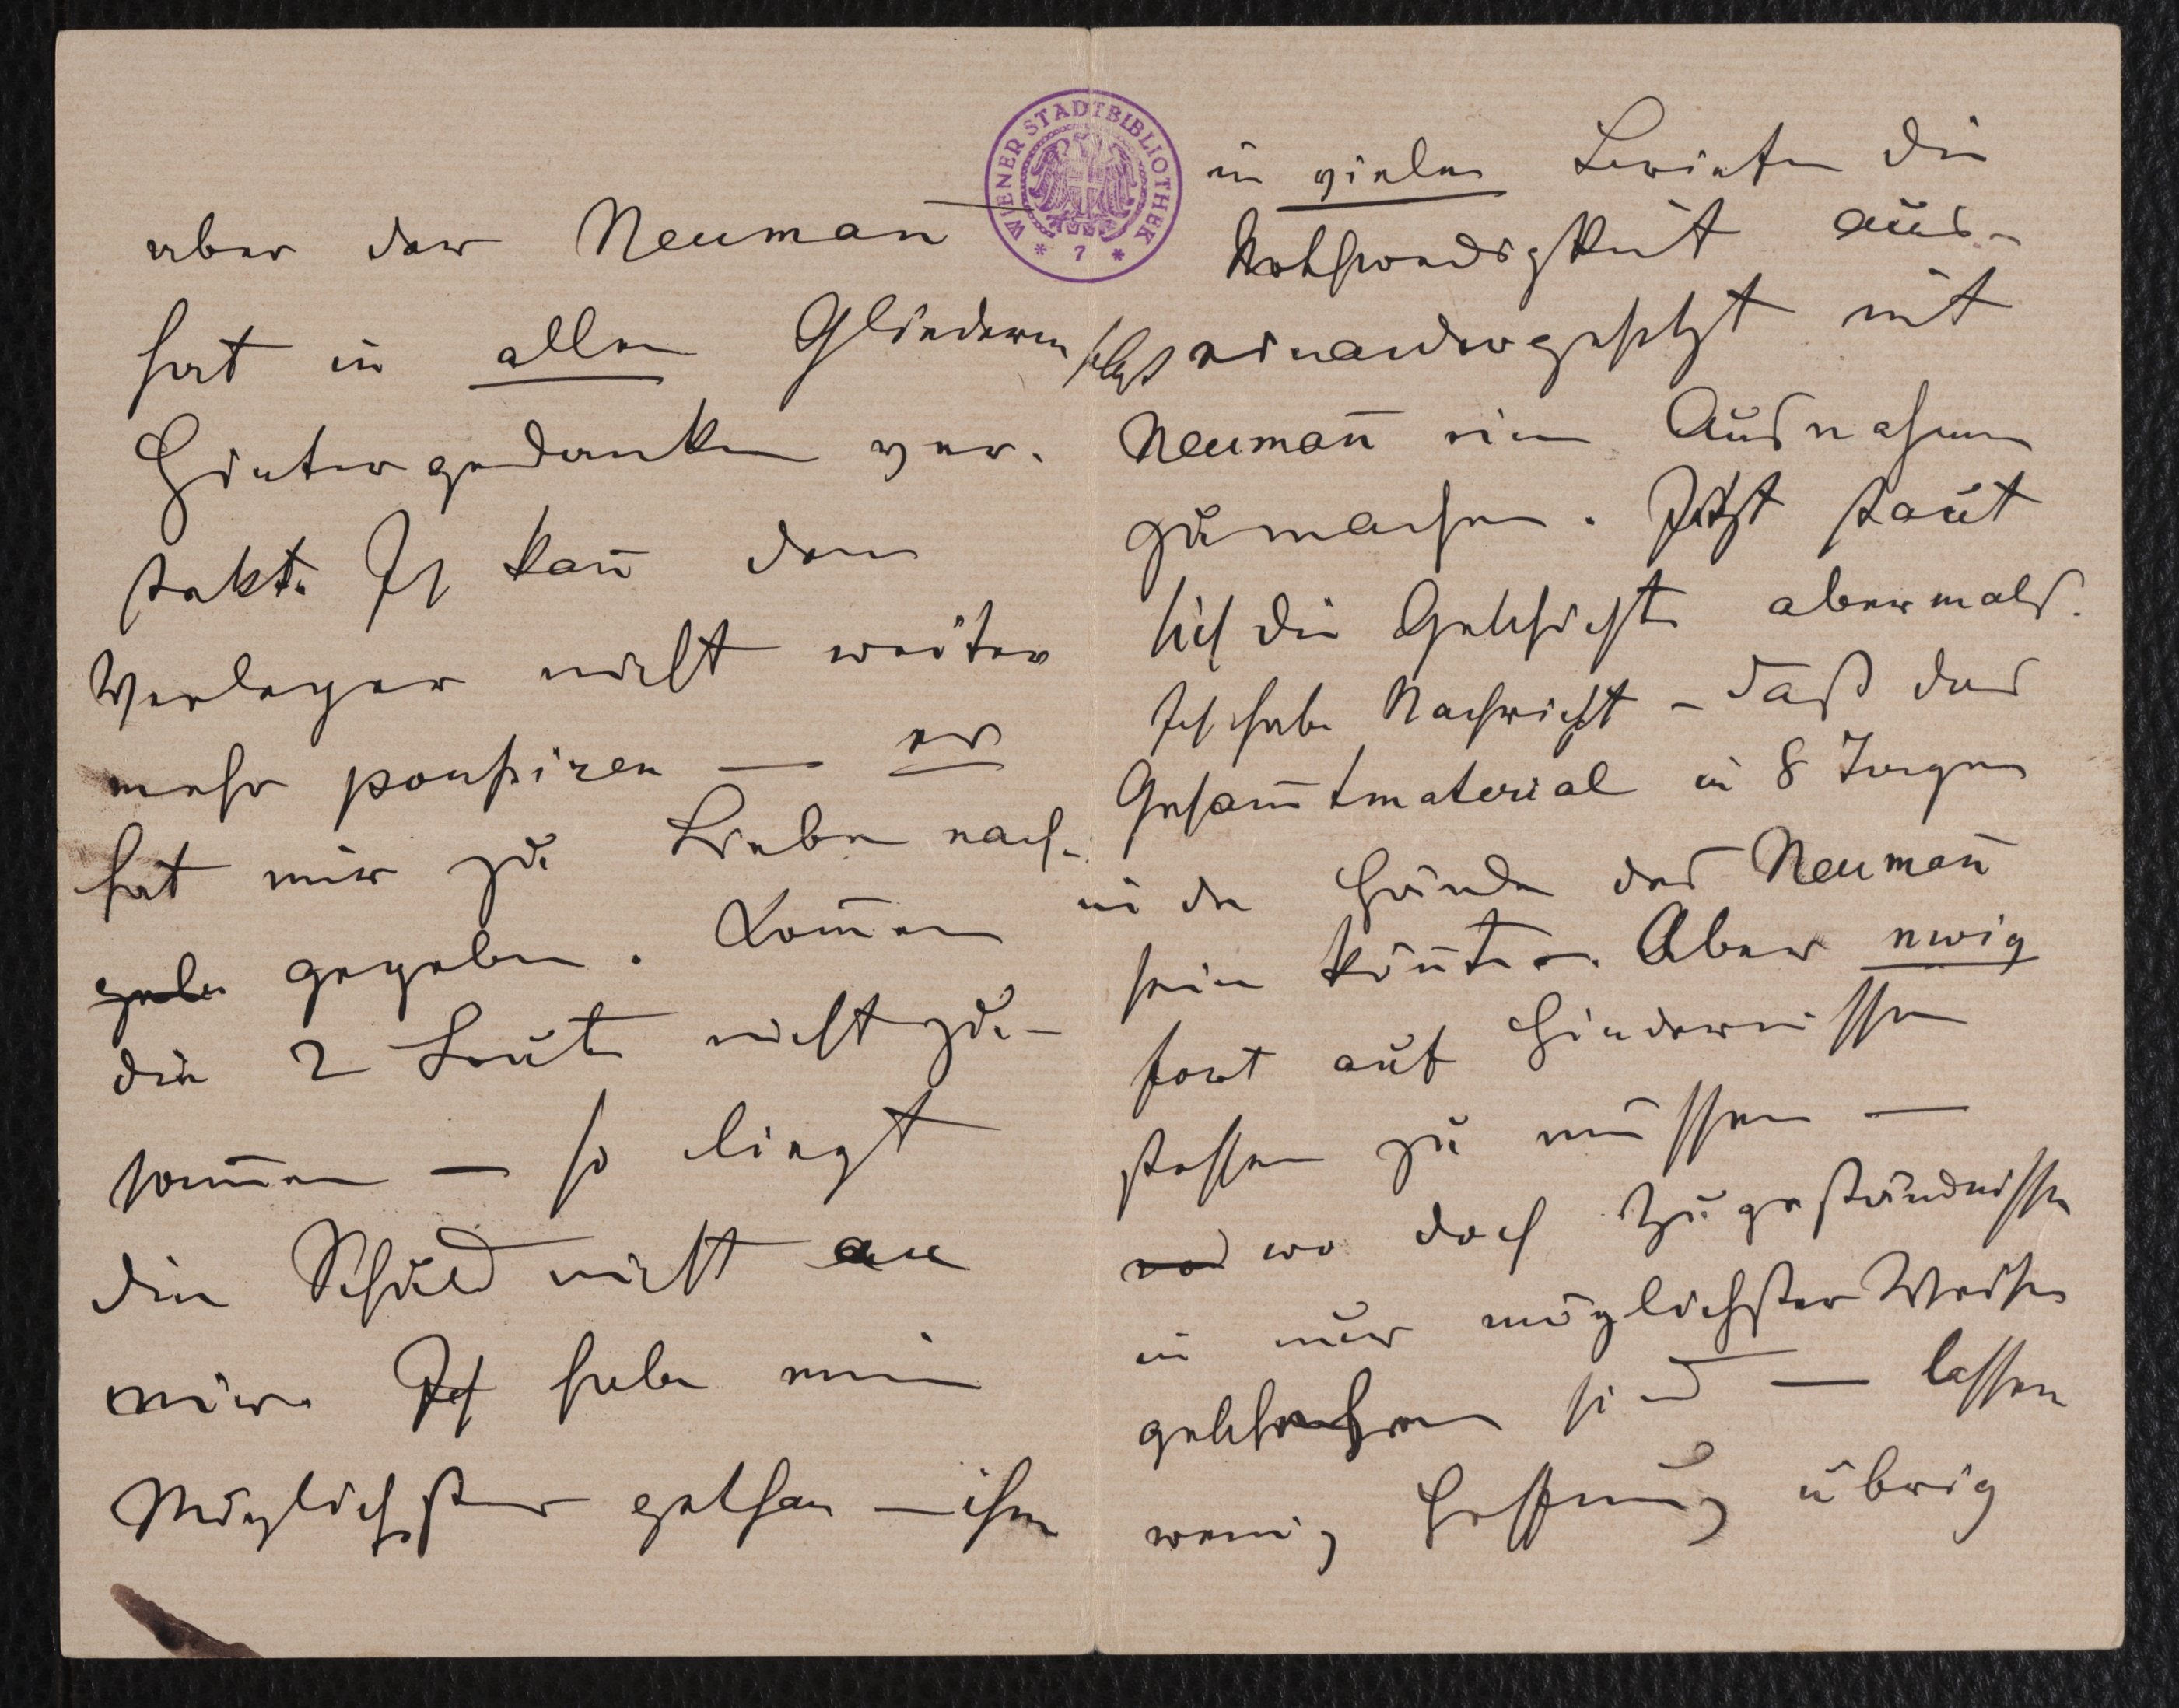 aber der Neuman̄
hat in allen Gliedern
Hintergedanken ver-
stekt. Ich kan̄ dem
Verleger nicht weiter
mehr poussiren — er
hat mir zu Liebe nach-
gebe gegeben. Kom̄en
die 2 Leute nicht zu-
som̄en — so liegt
die Schuld nicht an
mir. Ich habe mein
Möglichstes gethan — ihm
WIENER STADTBIBLIOTHEK
* 7 *
in vielen Briefen die
Nothwendigkeit aus-
selbst einandergesetzt mit
Neuman̄ eine Ausnahme
zu machen. Jetzt staut
sich die Geschichte abermals.
Ich habe Nachricht – daß das
Gesam̄tmaterial in 8 Tagen
in den Händen des Neuman̄
sein kön̄te. Aber ewig
fort auf Hindernisse
stossen zu müssen —
wo doch Zugeständnisse
in nur möglichster Weise
geschehen sind — lassen
wenig Hoffnung übrig